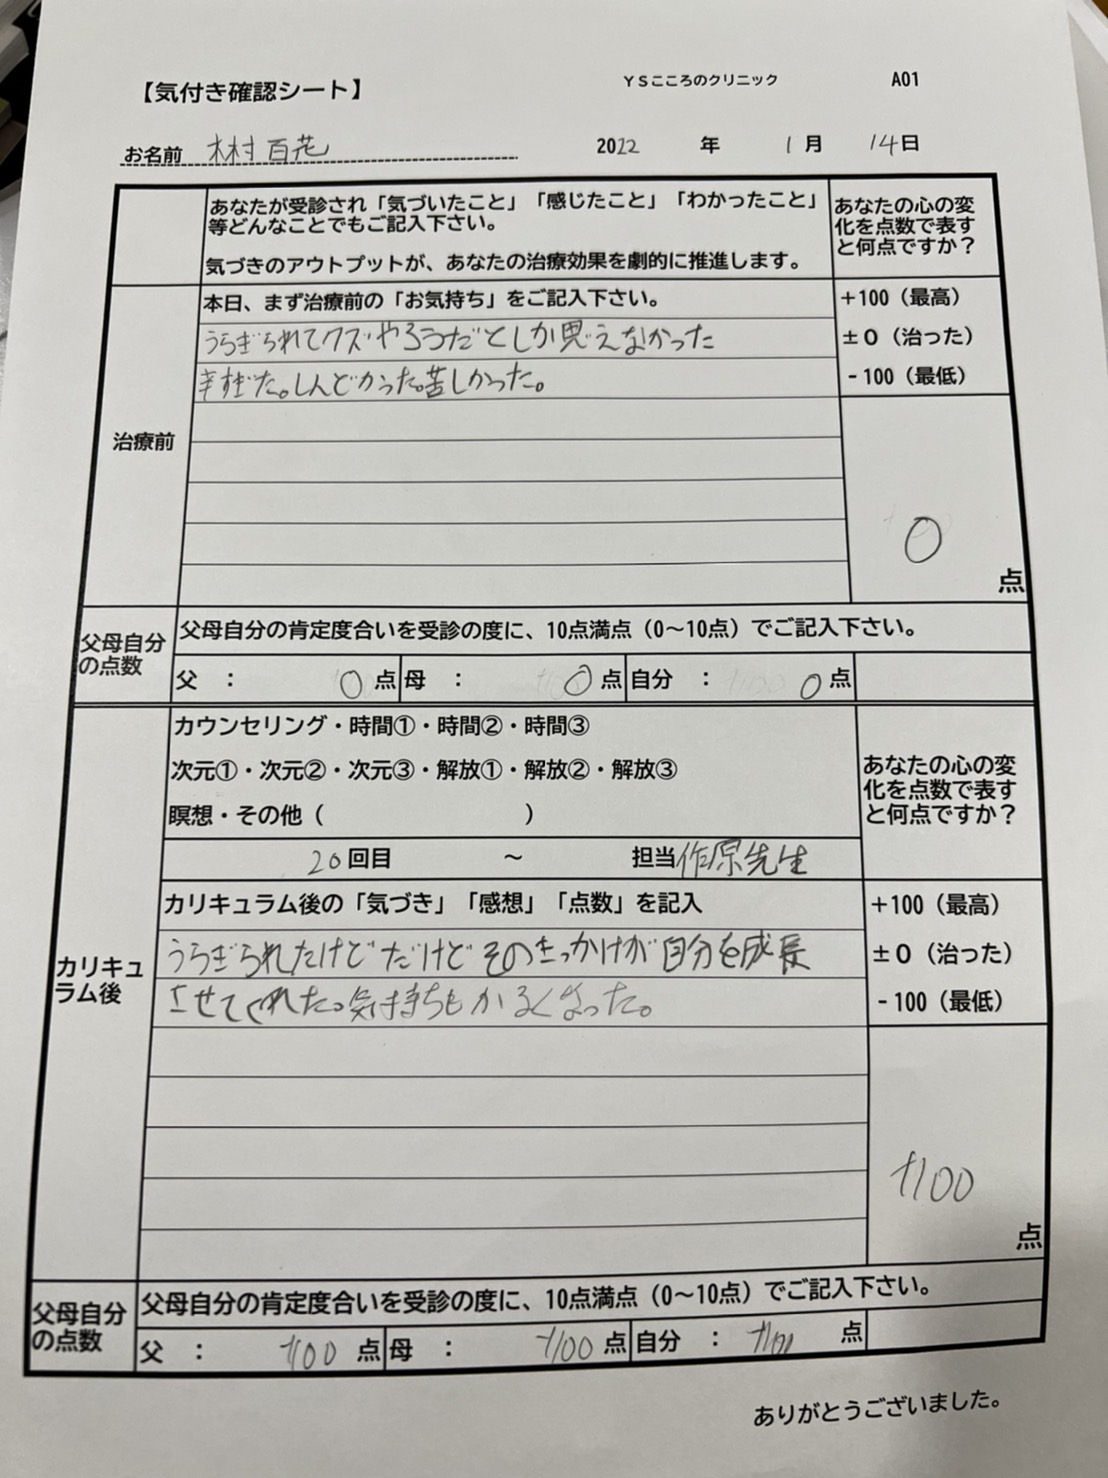 【気付き確認シート】
YSこころのクリニック
A01
お名前 木村百花
2022 年 1月 14日
あなたが受診され「気づいたこと」「感じたこと」「わかったこと」
等どんなことでもご記入下さい。
気づきのアウトプットが、あなたの治療効果を劇的に推進します。
あなたの心の変
化を点数で表す
と何点ですか？
治療前
本日、まず治療前の「お気持ち」をご記入下さい。
うらぎられてクズやろうだとしか思えなかった
辛すぎた。しんどかった。苦しかった。
+100（最高）
±0（治った）
-100（最低）
0
点
父母自分
の点数
父母自分の肯定度合いを受診の度に、10点満点（0～10点）でご記入下さい。
父 ： 0 点 母 ： 0 点 自分 ： 0 点
カリキュ
ラム後
カウンセリング・時間①・時間②・時間③
次元①・次元②・次元③・解放①・解放②・解放③
瞑想・その他（ ）
20回目 ～ 担当 作原先生
あなたの心の変
化を点数で表す
と何点ですか？
カリキュラム後の「気づき」「感想」「点数」を記入
うらぎられたけどだけどそのきっかけが自分を成長
させてくれた。気持ちもかるくなった。
+100（最高）
±0（治った）
-100（最低）
+100
点
父母自分
の点数
父母自分の肯定度合いを受診の度に、10点満点（0～10点）でご記入下さい。
父 ： +100 点 母 ： +100 点 自分 ： +100 点
ありがとうございました。